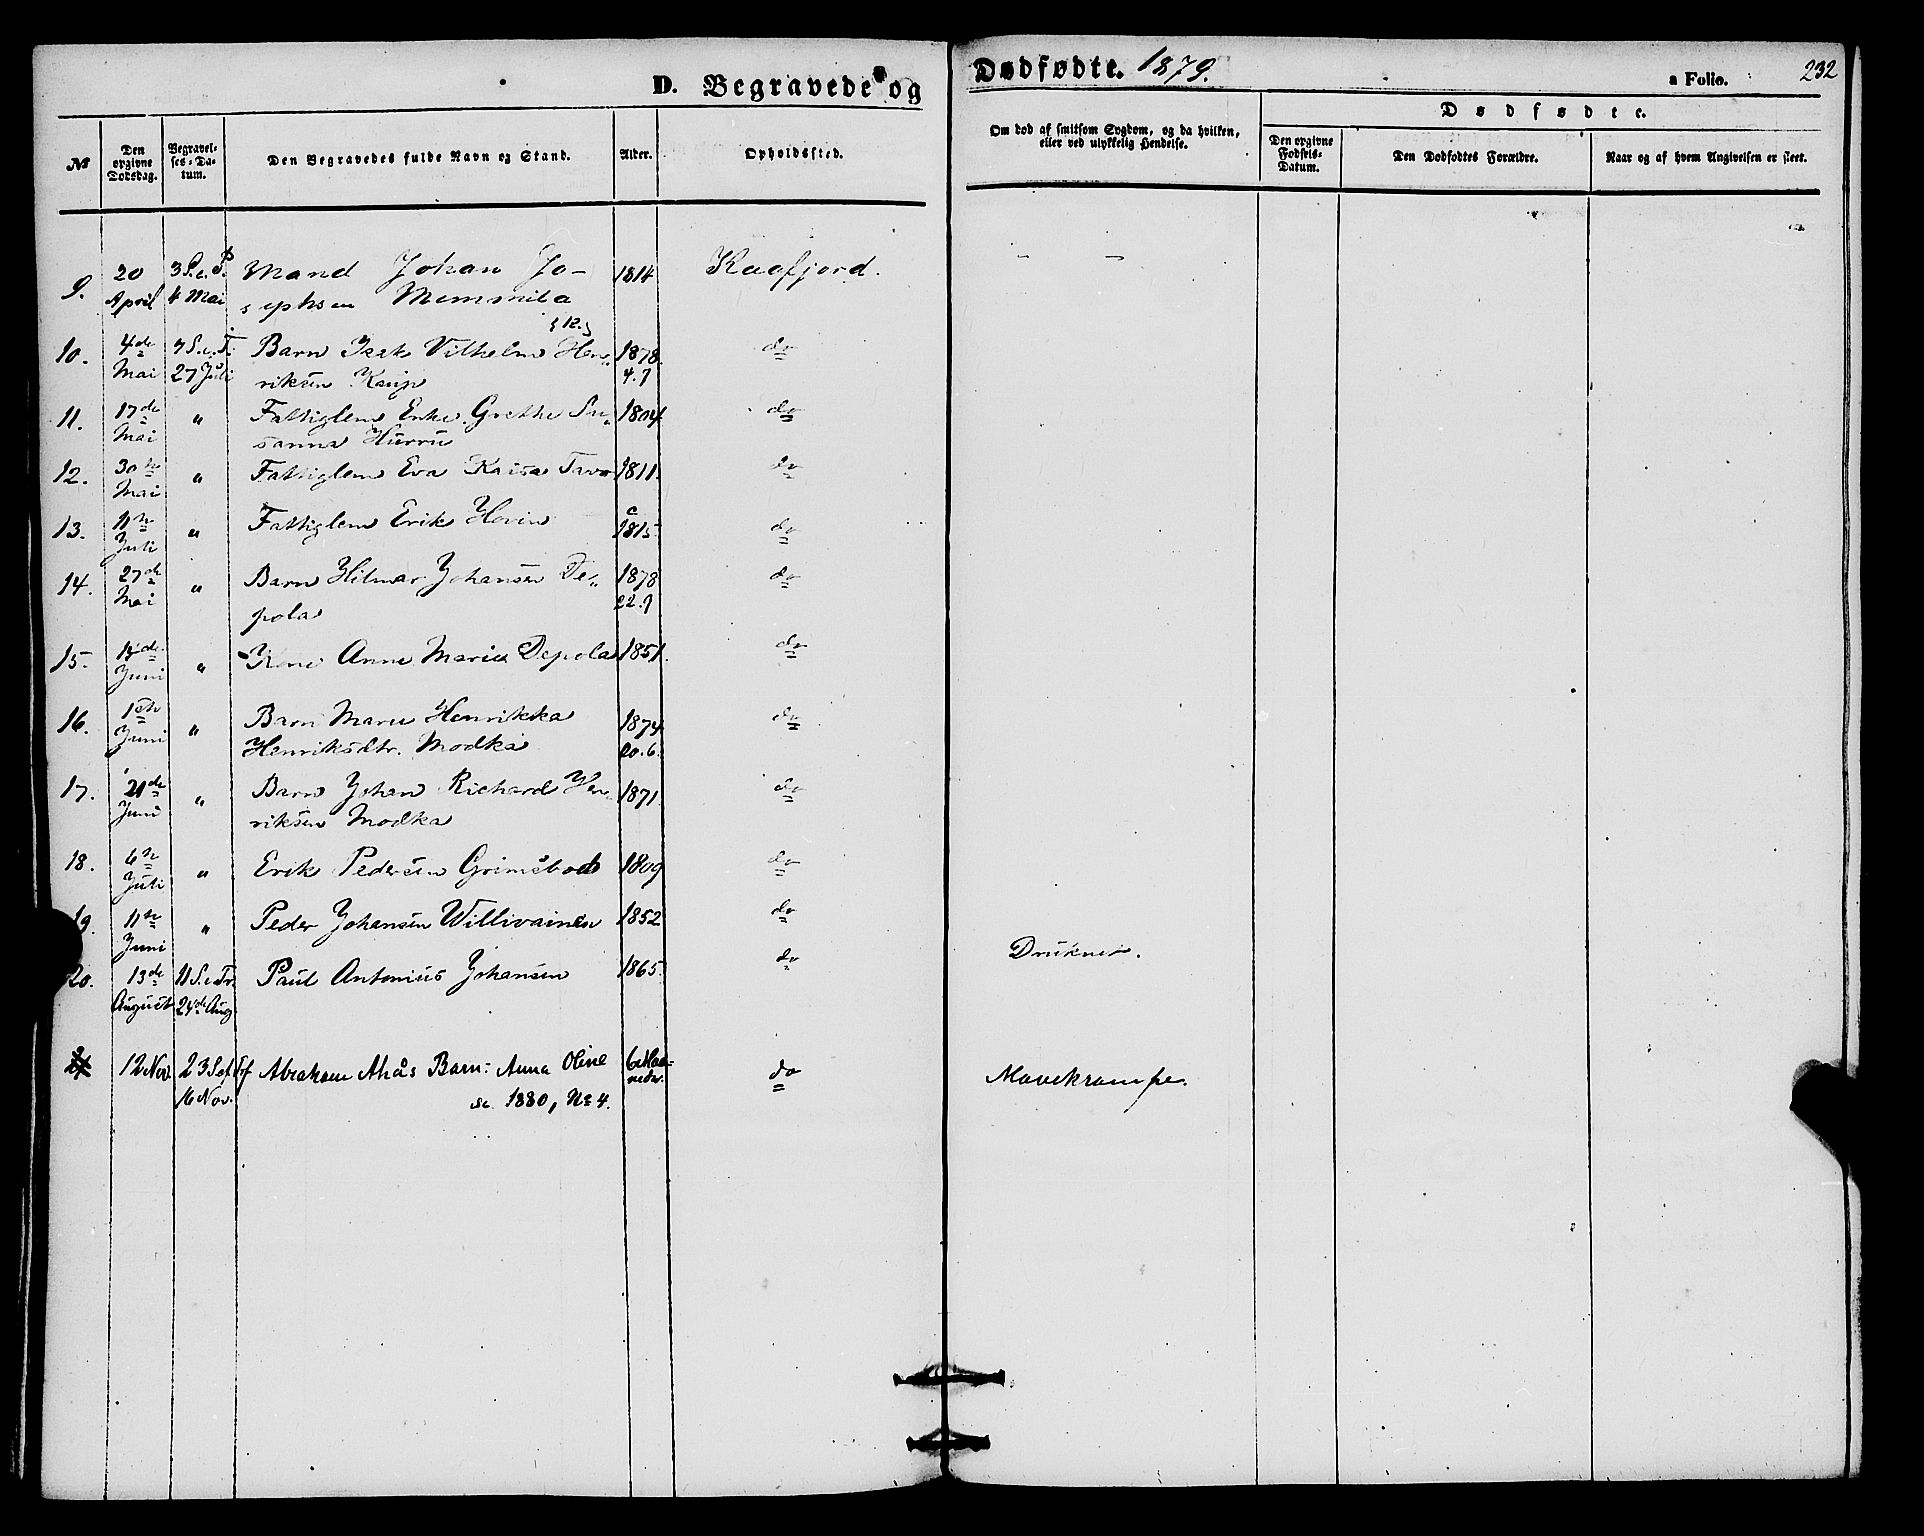 D. Begravede og
Dødfødte. 1879.
a Folio. 232
№
Den opgivne Dødsdag.
Begravelses-Datum.
Den Begravedes fulde Navn og Stand.
Alder.
Opholdssted.
Om død af smitsom Sygdom, og da hvilken, eller ved ulykkelig Hendelse.
Dødfødte.
Den opgivne Fødsels-Datum.
Den Dødfødtes Forældre.
Naar og af hvem Angivelsen er skeet.
9. 20 3 S. e. P. Mand Johan Jo- 1814 Kaafjord.
April 4 Mai sephsen
10. 4de 7 S. e. T. Barn Isak Vilhelm Hen- 1878. do
Mai 27 Juli riksen 4.7
11. 17de " Fattiglem Enke Grethe Su- 1804 do
Mai sanna Hurru
12. 30te " Fattiglem Eva Kaisa Tavo 1811. do
Mai
13. 11te " Fattiglem Erik 1815 do
Juli
14. 27de " Barn Hilmar Johansen De- 1878 do
Mai pola 22.9
15. " Kone Anne Maria Depola 1851. do
Juni
16. 1ste " Barn Maria Henrikka 1874 do
Juni Henriksdtr. Modka 20.6.
17. 21de " Barn Johan Richard Hen- 1871. do
Juni riksen Modka
18. 6te " Erik Pedersen Grimsbod 1809 do
Juli
19. 11te " Peder Johansen Willivainen 1852 do
Juni Druknet.
20. 13de 11 S. e. Tr. Paul Antonius Johansen 1865. do
August 24de Aug
12 Nov. 23 S. ef. Tf Abraham Ahås Barn: Anna Oline 6 Maa- do Mavekrampe.
16 Nov. se 1880, No 4. neder.